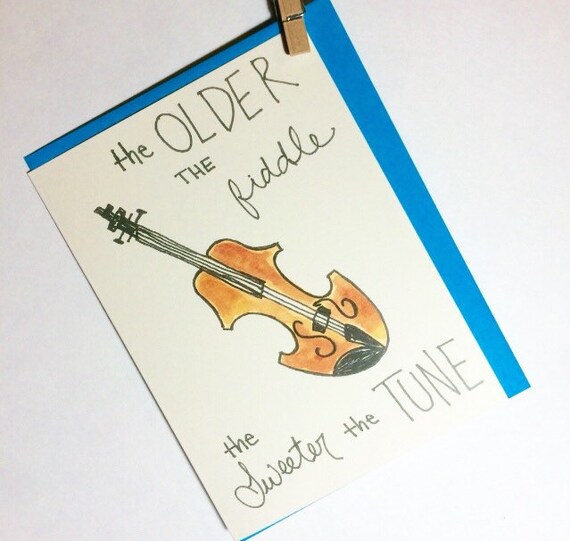 the OLDER
THE fiddle
the Sweeter the TUNE